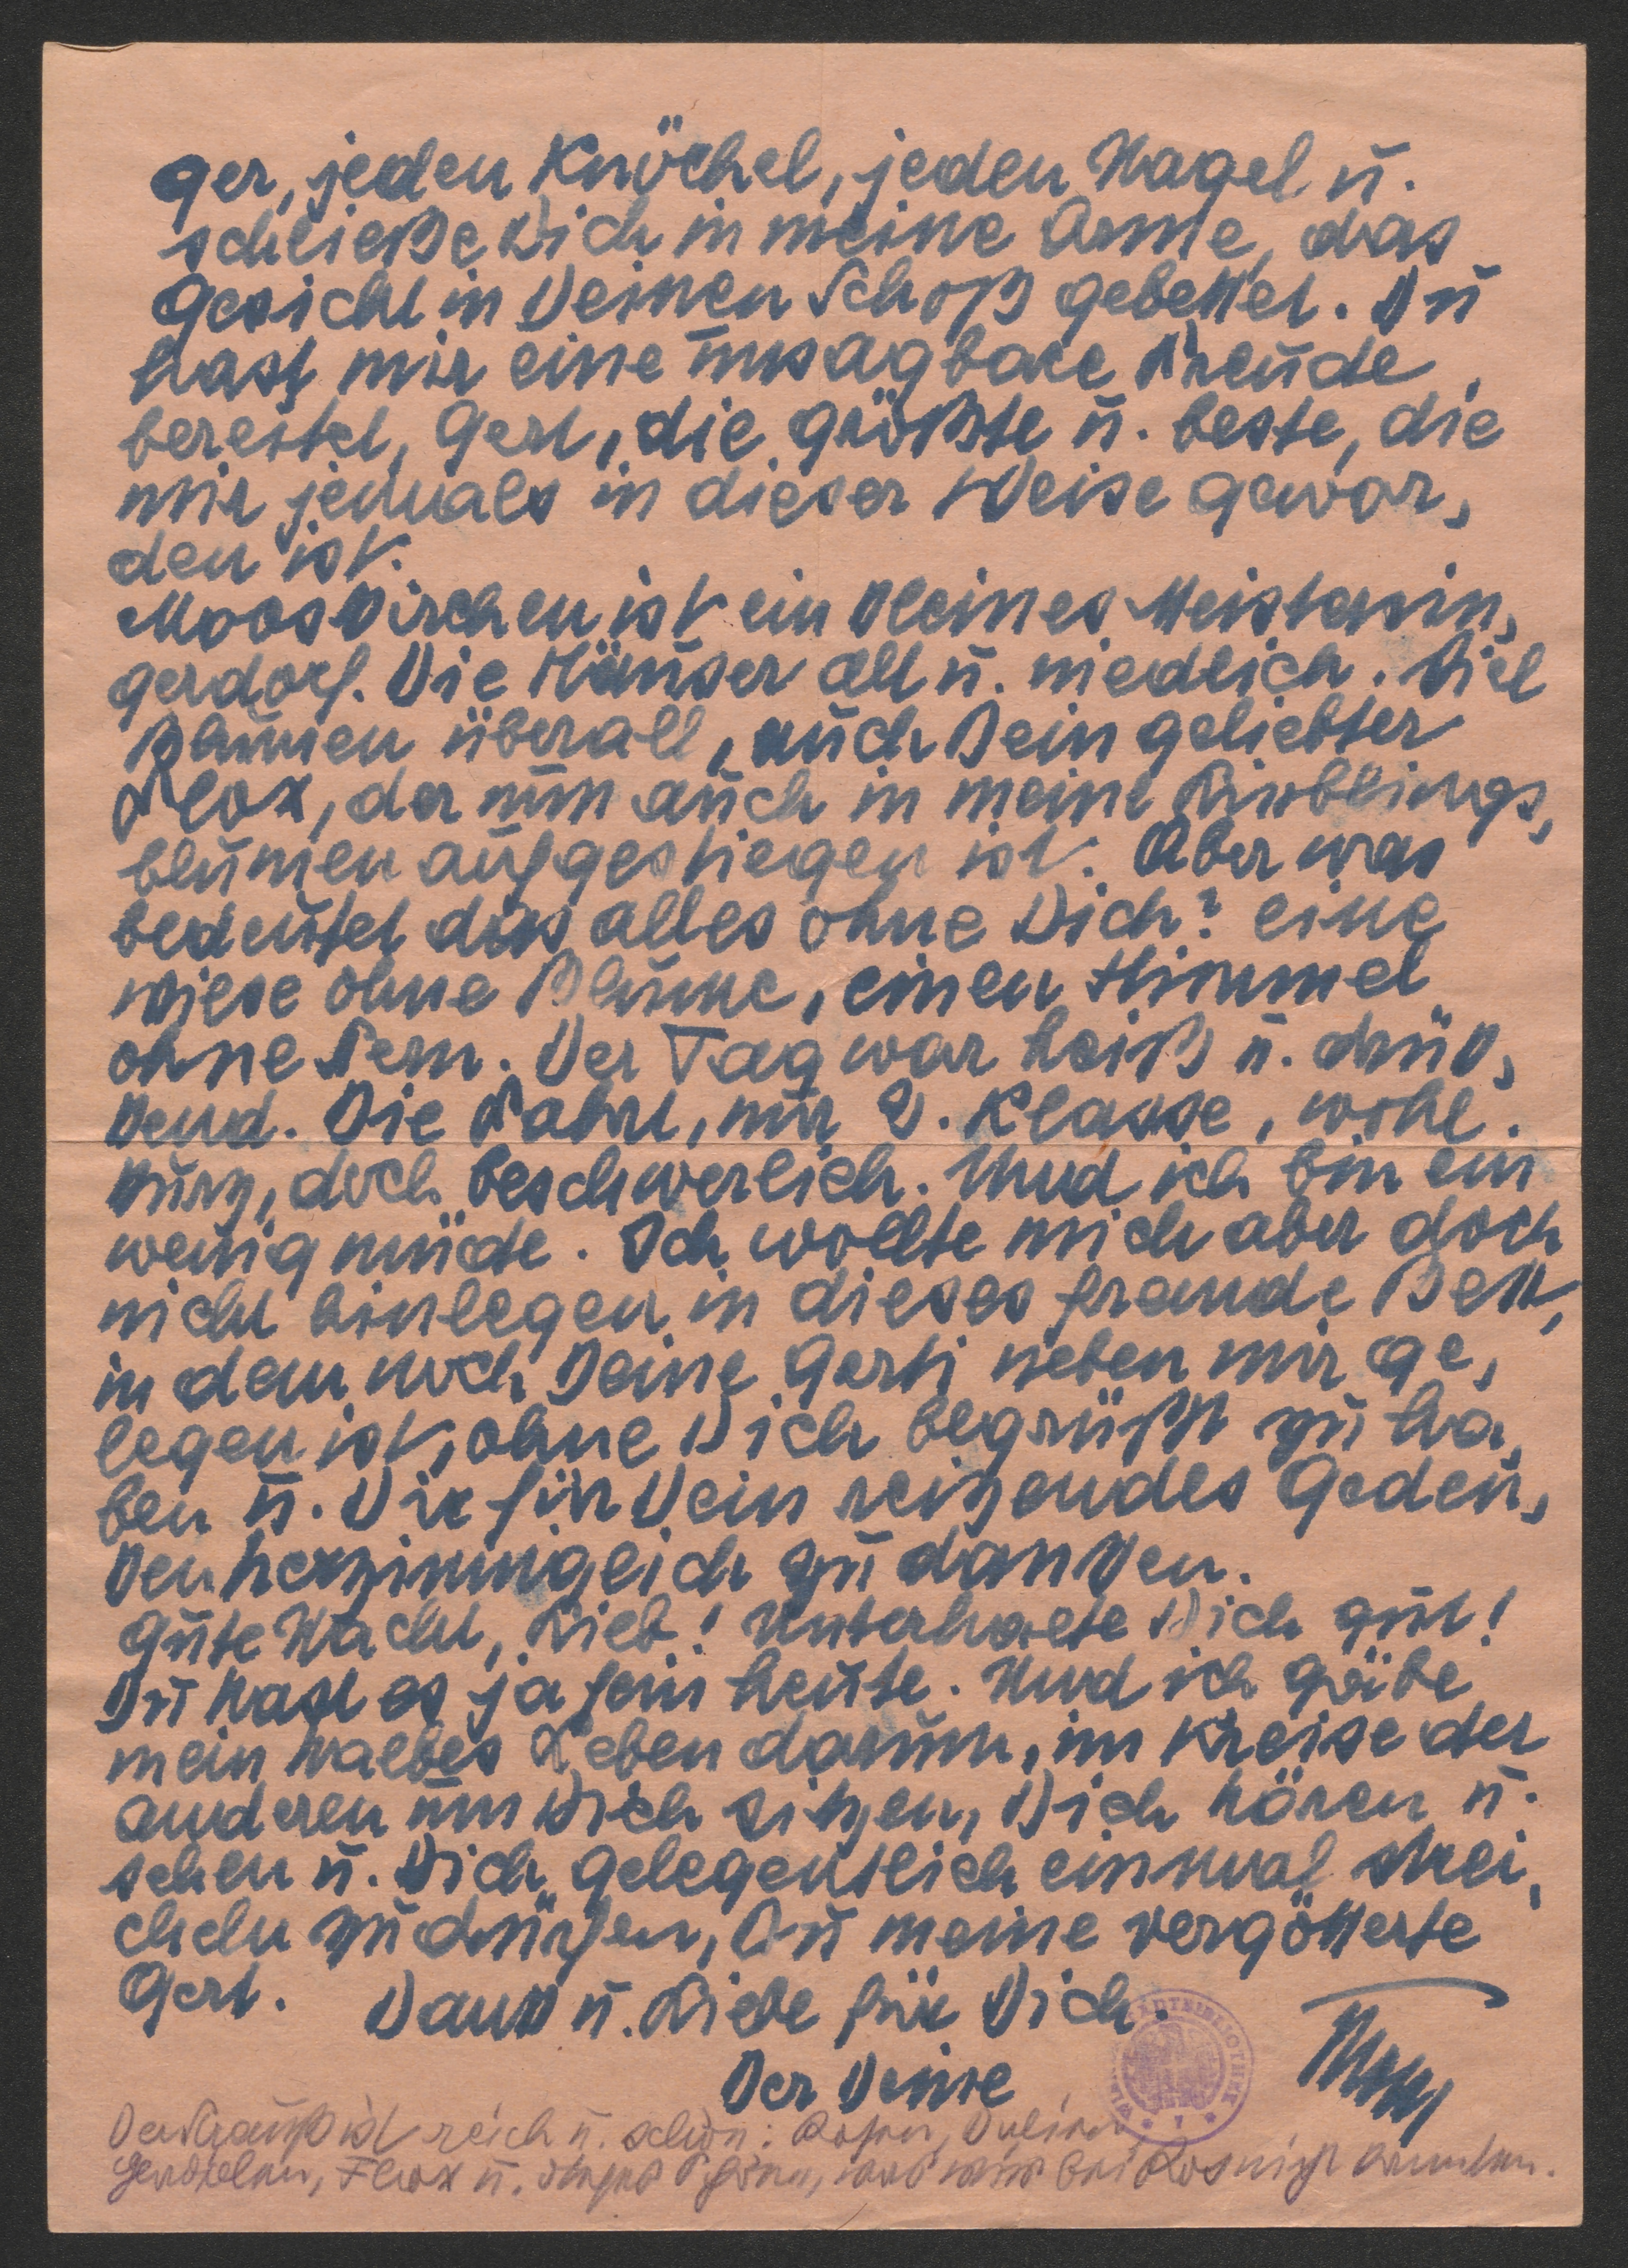 ger, jeden Knöchel, jeden Nagel u.
schließe Dich in meine Arme, das
Gesicht in Deinen Schoß gebettet. Du
hast mir eine unsagbare Freude
bereitet, Gerl, die größte u. beste, die
mir jemals in dieser Weise gewor,
den ist.
Mooskirchen ist ein kleines Meistersin,
gerdorf. Die Häuser alt u. niedlich. Viel
Blumen überall, auch Dein geliebter
Flox, der nun auch in meine Lieblings,
blumen aufgestiegen ist. Aber was
bedeutet das alles ohne Dich? eine
Wiese ohne Blume, einen Himmel
ohne Stern. Der Tag war heiß u. drük,
kend. Die Fahrt, nur 2. Klasse, wohl
kurz, doch beschwerlich. Und ich bin ein
wenig müde. Ich wollte mich aber doch
nicht hinlegen in dieses fremde Bett,
in dem noch Deine Gerti neben mir ge,
legen ist, ohne Dich begrüßt zu ha,
ben u. Dir für Dein reizendes Geden,
ken herzinniglich zu danken.
Gute Nacht, Lieb! Unterhalte Dich gut!
Du hast es ja fein heute. Und ich gäbe
mein halbes Leben darum, im Kreise der
anderen um Dich sitzen, Dich hören u.
sehen u. Dich gelegentlich einmal strei,
cheln zu dürfen, Du meine vergötterte
Gerl. Dank u. Liebe für Dich.
Der Deine
Der Strauß ist reich u. schön: Rosen,
Flox u.